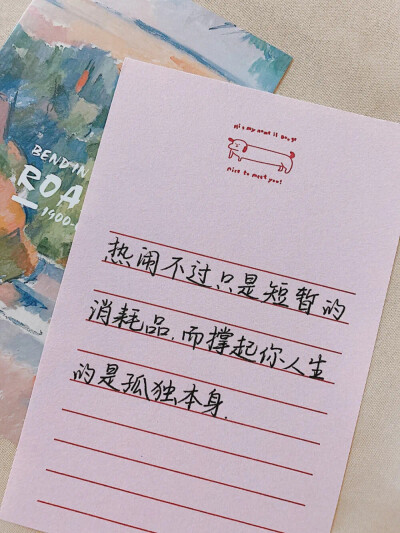 BEND IN
ROA
1900-
Hi my name is Doogo
nice to meet you!
热闹不过只是短暂的
消耗品,而撑起你人生
的是孤独本身.